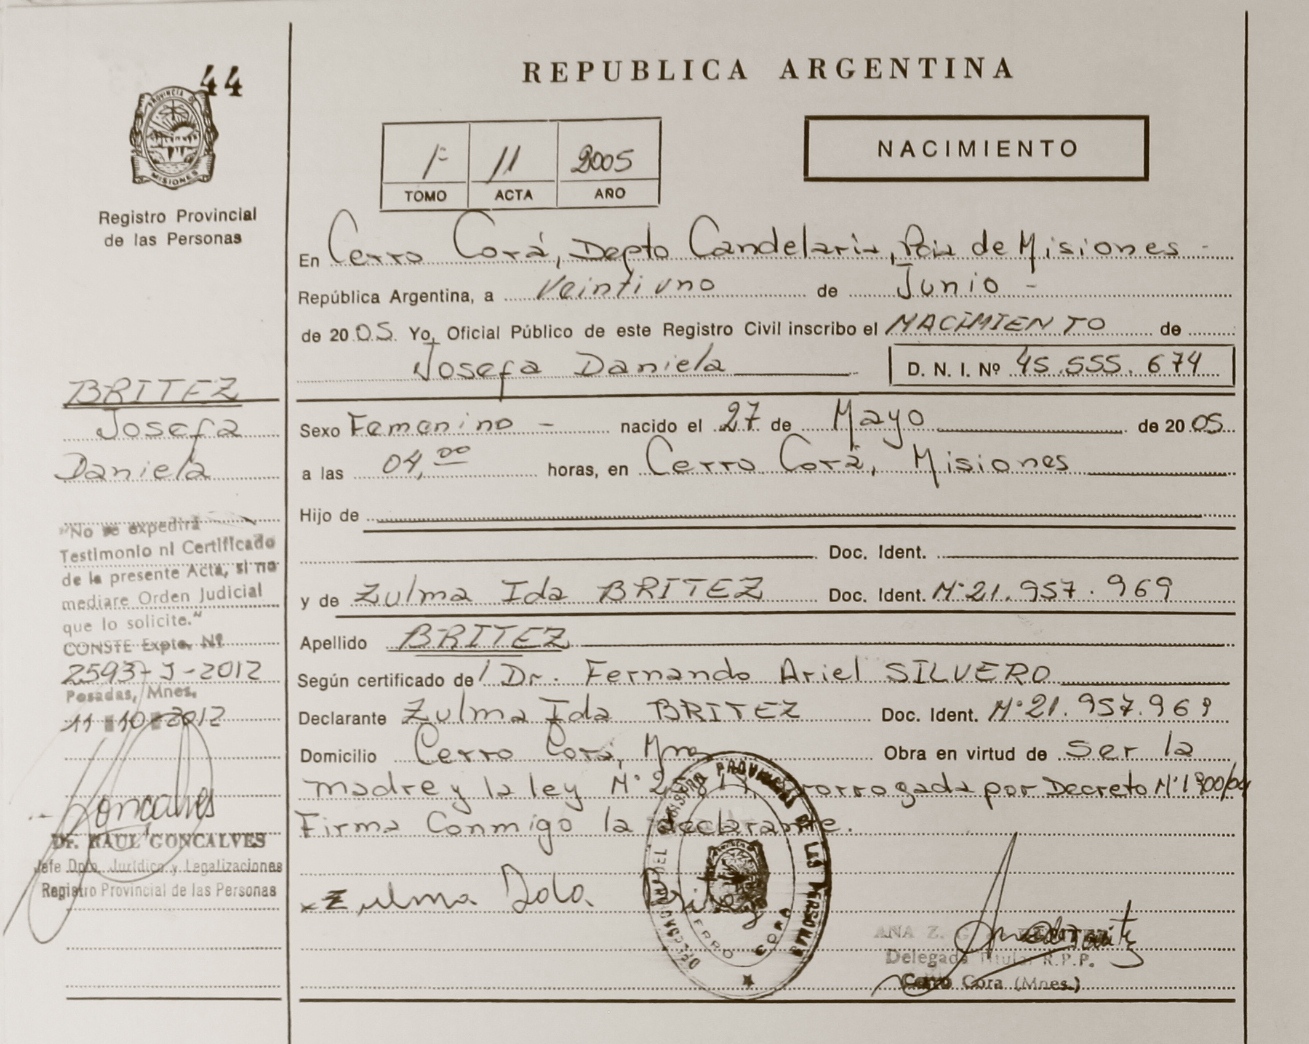 44
PROVINCIA DE
MISIONES
Registro Provincial
de las Personas
BRITEZ
Josefa
Daniela
"No se expedirá
Testimonio ni Certificado
de la presente Acta, si no
mediare Orden Judicial
que lo solicite."
CONSTE Expte. Nº
2593-J-2012
Posadas, Mnes.
11 10 2012
Goncalves
Dr. RAUL GONCALVES
Jefe Dpto. Jurídico y Legalizaciones
Registro Provincial de las Personas
REPUBLICA ARGENTINA
1º 11 2005
TOMO ACTA AÑO
NACIMIENTO
En Cerro Corá, Depto Candelaria, Pcia de Misiones -
República Argentina, a Veintiuno de Junio -
de 20 05. Yo, Oficial Público de este Registro Civil inscribo el NACIMIENTO de
Josefa Daniela D. N. I. Nº 45.555.674
Sexo Femenino - nacido el 27 de Mayo de 20 05
a las 04,00 horas, en Cerro Corá, Misiones
Hijo de
Doc. Ident.
y de Zulma Ida BRITEZ Doc. Ident. Nº 21.957.969
Apellido BRITEZ
Según certificado de / Dr. Fernando Ariel SILVERO
Declarante Zulma Ida BRITEZ Doc. Ident. Nº 21.957.969
Domicilio Cerro Corá, Mnes Obra en virtud de Ser la
madre y la ley Nº prorrogada por Decreto Nº 1900/04
Firma Conmigo la declarante.
Zulma Ida Britez
DELEGACION DEL REGISTRO PROVINCIAL DE LAS PERSONAS
CERRO CORA
ANA Z.
Delegada Titular R.P.P.
Cerro Cora (Mnes.)